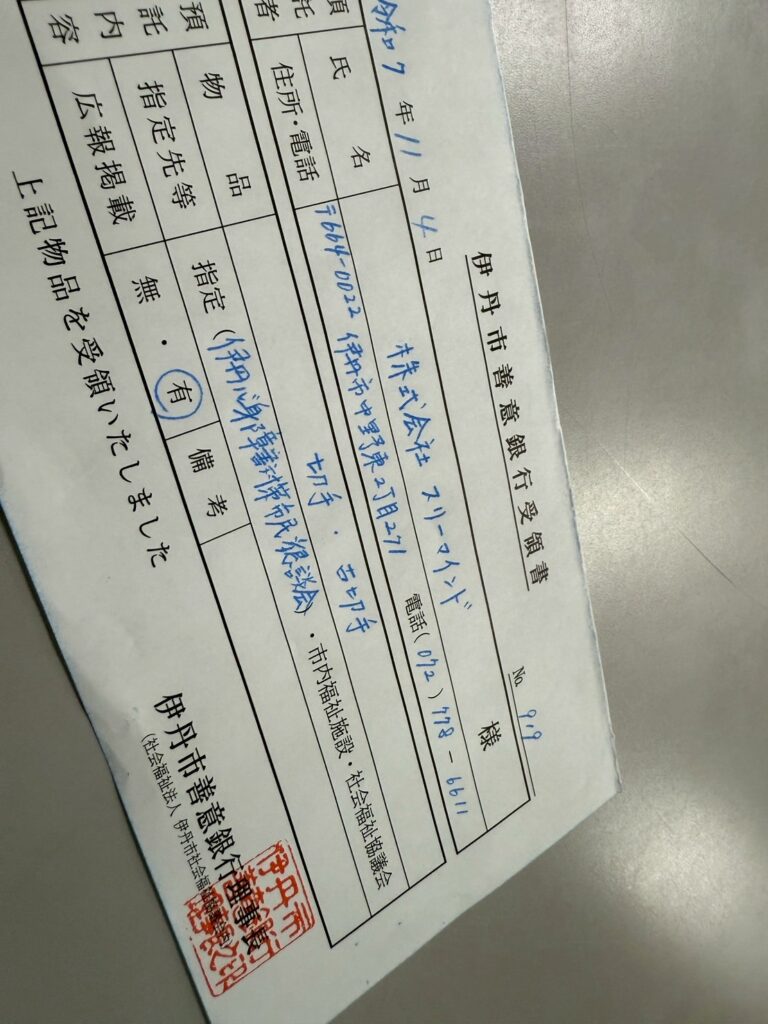 伊丹市善意銀行受領書
No. 919
令和7年11月4日
預託者
氏名 株式会社 スリーマインド 様
住所・電話 〒664-0022 伊丹市中野東2丁目271 電話(072)778-6611
預託内容
物品 切手・古切手
指定先等 指定(伊丹心身障害対策市民懇談会)・市内福祉施設・社会福祉協議会
広報掲載 無・有 備考
上記物品を受領いたしました
伊丹市善意銀行理事長
(社会福祉法人 伊丹市社会福祉